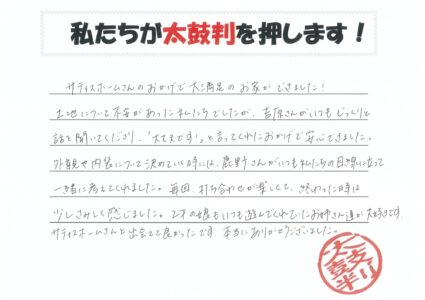 私たちが太鼓判を押します！
サティスホームさんのおかげで大満足のお家ができました！
土地について不安があった私たちでしたが、吉原さんがいつもじっくりと
話を聞いてくださり、「大丈夫です！」と言ってくれたおかげで安心できました。
外観や内装について決めていく時には、鹿野さんがいつも私たちの目線になって
一緒に考えてくれました。毎回、打ち合わせが楽しくて、終わった時は
少しさみしく感じました。2才の娘もいつも遊んでくれていたお姉さん達が大好きです。
サティスホームさんと出会えて良かったです 本当にありがとうございました。